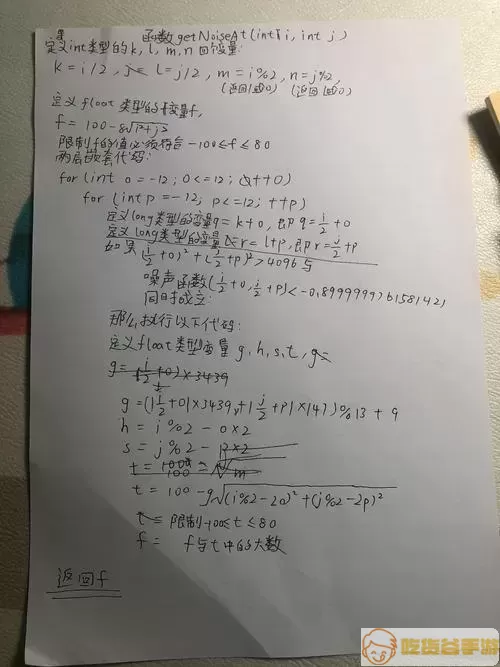 函数getNoiseAt(int i, int j)
定义int类型的k, l, m, n四个变量:
k = i/2, l = j/2, m = i%2, n = j%2,
(返回1或0) (返回1或0)
定义float类型的变量f,
f = 100-8√i²+j²
限制f的值必须符合 -100≤f≤80
两层嵌套代码:
for(int o = -12; o<=12; ++o)
for(int p = -12; p<=12; ++p)
定义long类型的变量q = k+o, 即q = i/2 + o
定义long类型的变量r = l+p, 即r = j/2 + p
如果(i/2+o)² + (j/2+p)² > 4096与
噪声函数(i/2+o, j/2+p) < -0.8999999761581421
同时成立:
那么执行以下代码:
定义float类型变量 g, h, s, t,
g = (|i/2+o|×3439+|j/2+p|×147)%13 + 9
h = i%2 - o×2
s = j%2 - p×2
t = 100 - g√(i%2-2o)²+(j%2-2p)²
限制-100≤t≤80
f = f与t中的大数
返回f
吃货谷手游